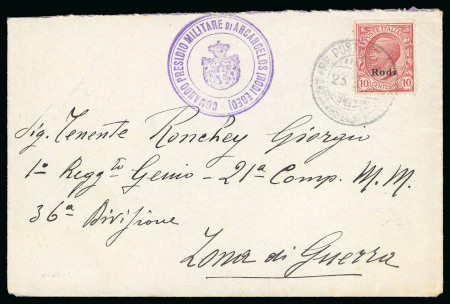 COMANDO PRESIDIO MILITARE DI ARCANGELOS (RODI EGEO)
POSTE ITALIANE
Rodi
10 CENTESIMI 10
23
Sig. Tenente Ronchey Giorgio
1º Regg.to Genio - 21ª Comp. M. M.
36ª Divisione
Zona di Guerra